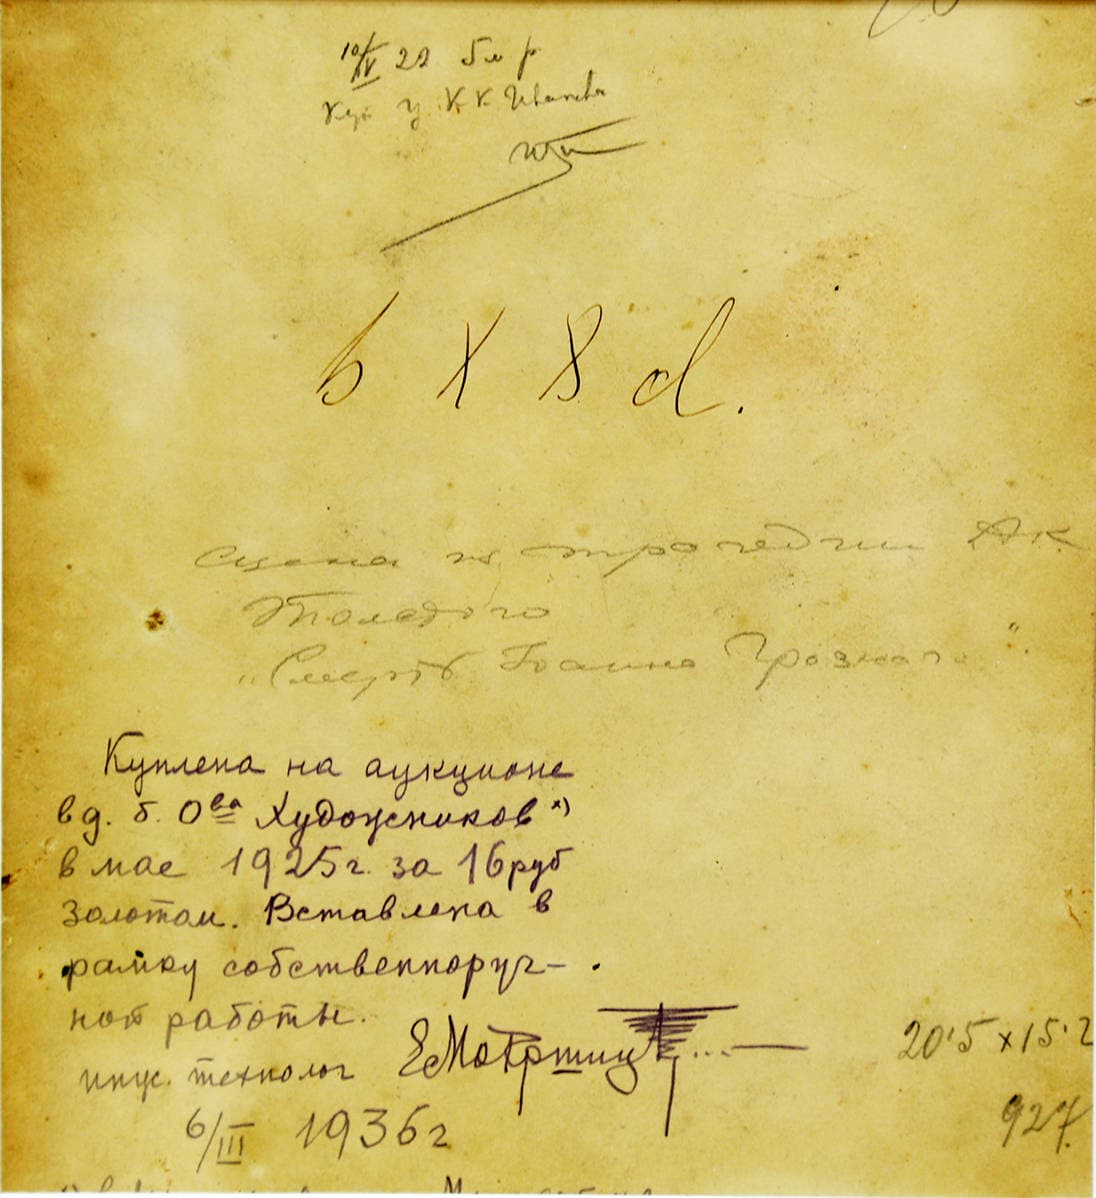 10/IV 22
Куп у К К Иванова
b X 8 d.
Сцена из трагедии АК
Толстого
„Смерть Иоанна Грозного".
Куплена на аукционе
в д. б. О<sup>ва</sup> Художников х)
в мае 1925 г. за 16 руб
золотом. Вставлена в
рамку собственноруч-
ной работы.
инж. технолог
6/III 1936 г
20.5 x 15.2
927.